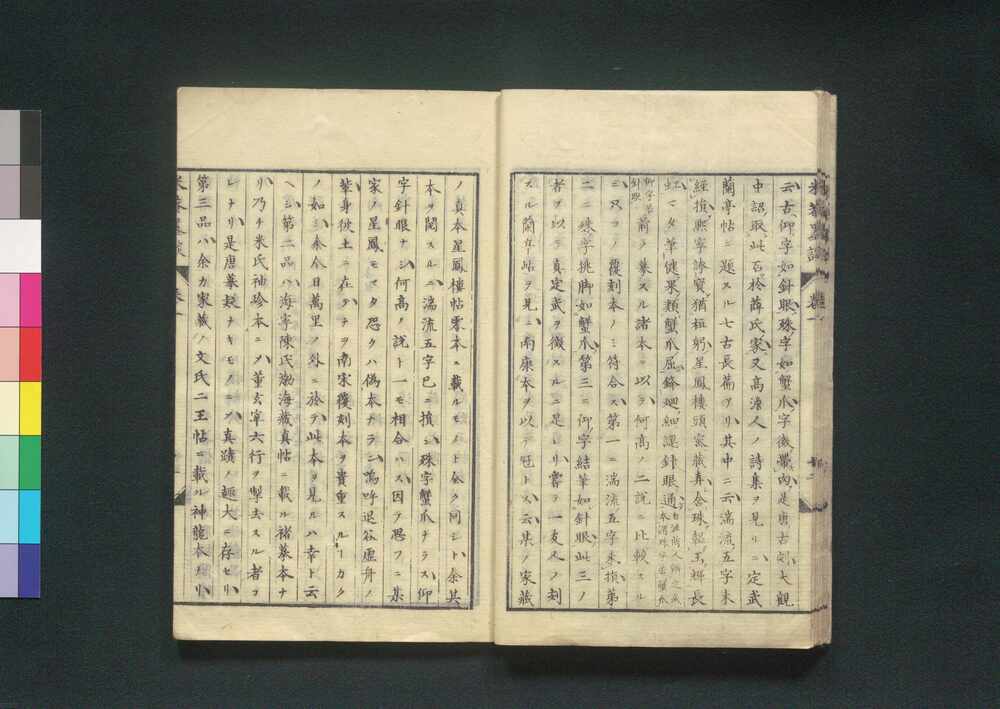 云、古、仰字如針眼、殊字如蟹爪、字微帶肉、是唐古刻、大觀
中詔取、此石於薛氏家、又高濟人ノ詩集ヲ見ルニ、定武
蘭亭帖ニ題スル七古長篇アリ、其中ニ云、湍流五字未
經損、熙寧誇寶猶桓躬、星鳳樓頭家藏弆、含珠韞玉輝長
虹、マタ筆健果類蟹爪屈、鋒廻細課針眼通
仰字若針眼
前ヲ摹スル諸本ヲ以テ何高ノ二説ニ比較スル
ニ、只コノ覆刻本ノミ符合ス、第一ニ湍流五字未損、第
二ニ殊字挑脚如蟹爪、第三ニ仰字結筆如針眼、此三ノ
者ヲ以テ真定武ヲ徴スルニ足レリ、嘗テ一友人ノ刻
スル蘭亭帖ヲ見ニ、南康本ヲ以テ冠トス、云、某ノ家藏
ノ真本、星鳳樓帖零本ニ載ルモノト全ク同シト、余其
本ヲ閲スルニ、湍流五字已ニ損シ、殊字蟹爪ナラス、仰
字針眼ナシ、何高ノ説ト一モ相合ハス、因テ思フニ某
家ノ星鳳モマタ恐クハ偽本ナラン、嗚呼退谷虚舟ノ
輩身彼土ニ在テサヘ南宋覆刻本ヲ貴重スルーカク
ノ如シ、余今日萬里ノ外ニ於テ此本ヲ見ルハ幸ト云
ヘシ、第二品ハ海寧陳氏渤海藏真帖ニ載ル褚摹本ナ
リ、乃チ米氏袖珍本ニメ董玄宰六行ヲ掣去スル者ヲ
レナリ、是唐摹疑ナキモノニシテ真蹟ノ趣大ニ存セリ、
第三品ハ余カ家藏ノ文氏二王帖ニ載ル神龍本ナリ、